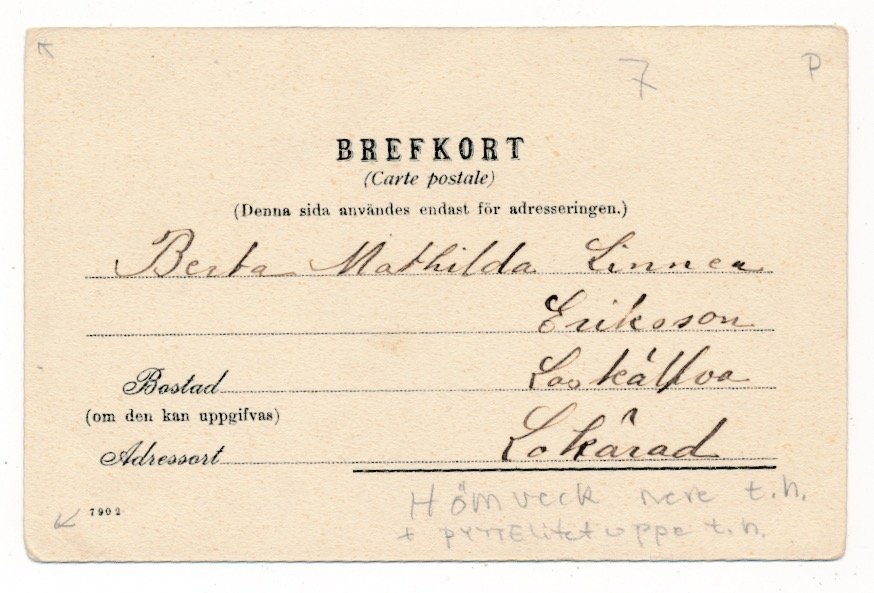 7 P
BREFKORT
(Carte postale)
(Denna sida användes endast för adresseringen.)
Berta Mathilda Linnea
Erikson
Bostad
(om den kan uppgifvas)
Adressort
7902
Hörnveck nere t.h.
+ pyttelitet uppe t.h.